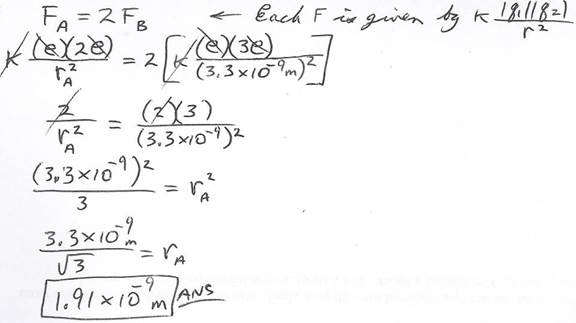 F_A = 2 F_B ← Each F is given by K |q₁||q₂| / r²
K (e)(2e) / r_A² = 2 [ K (e)(3e) / (3.3×10⁻⁹m)² ]
2 / r_A² = (2)(3) / (3.3×10⁻⁹)²
(3.3×10⁻⁹)² / 3 = r_A²
3.3×10⁻⁹m / √3 = r_A
1.91×10⁻⁹ m ANS